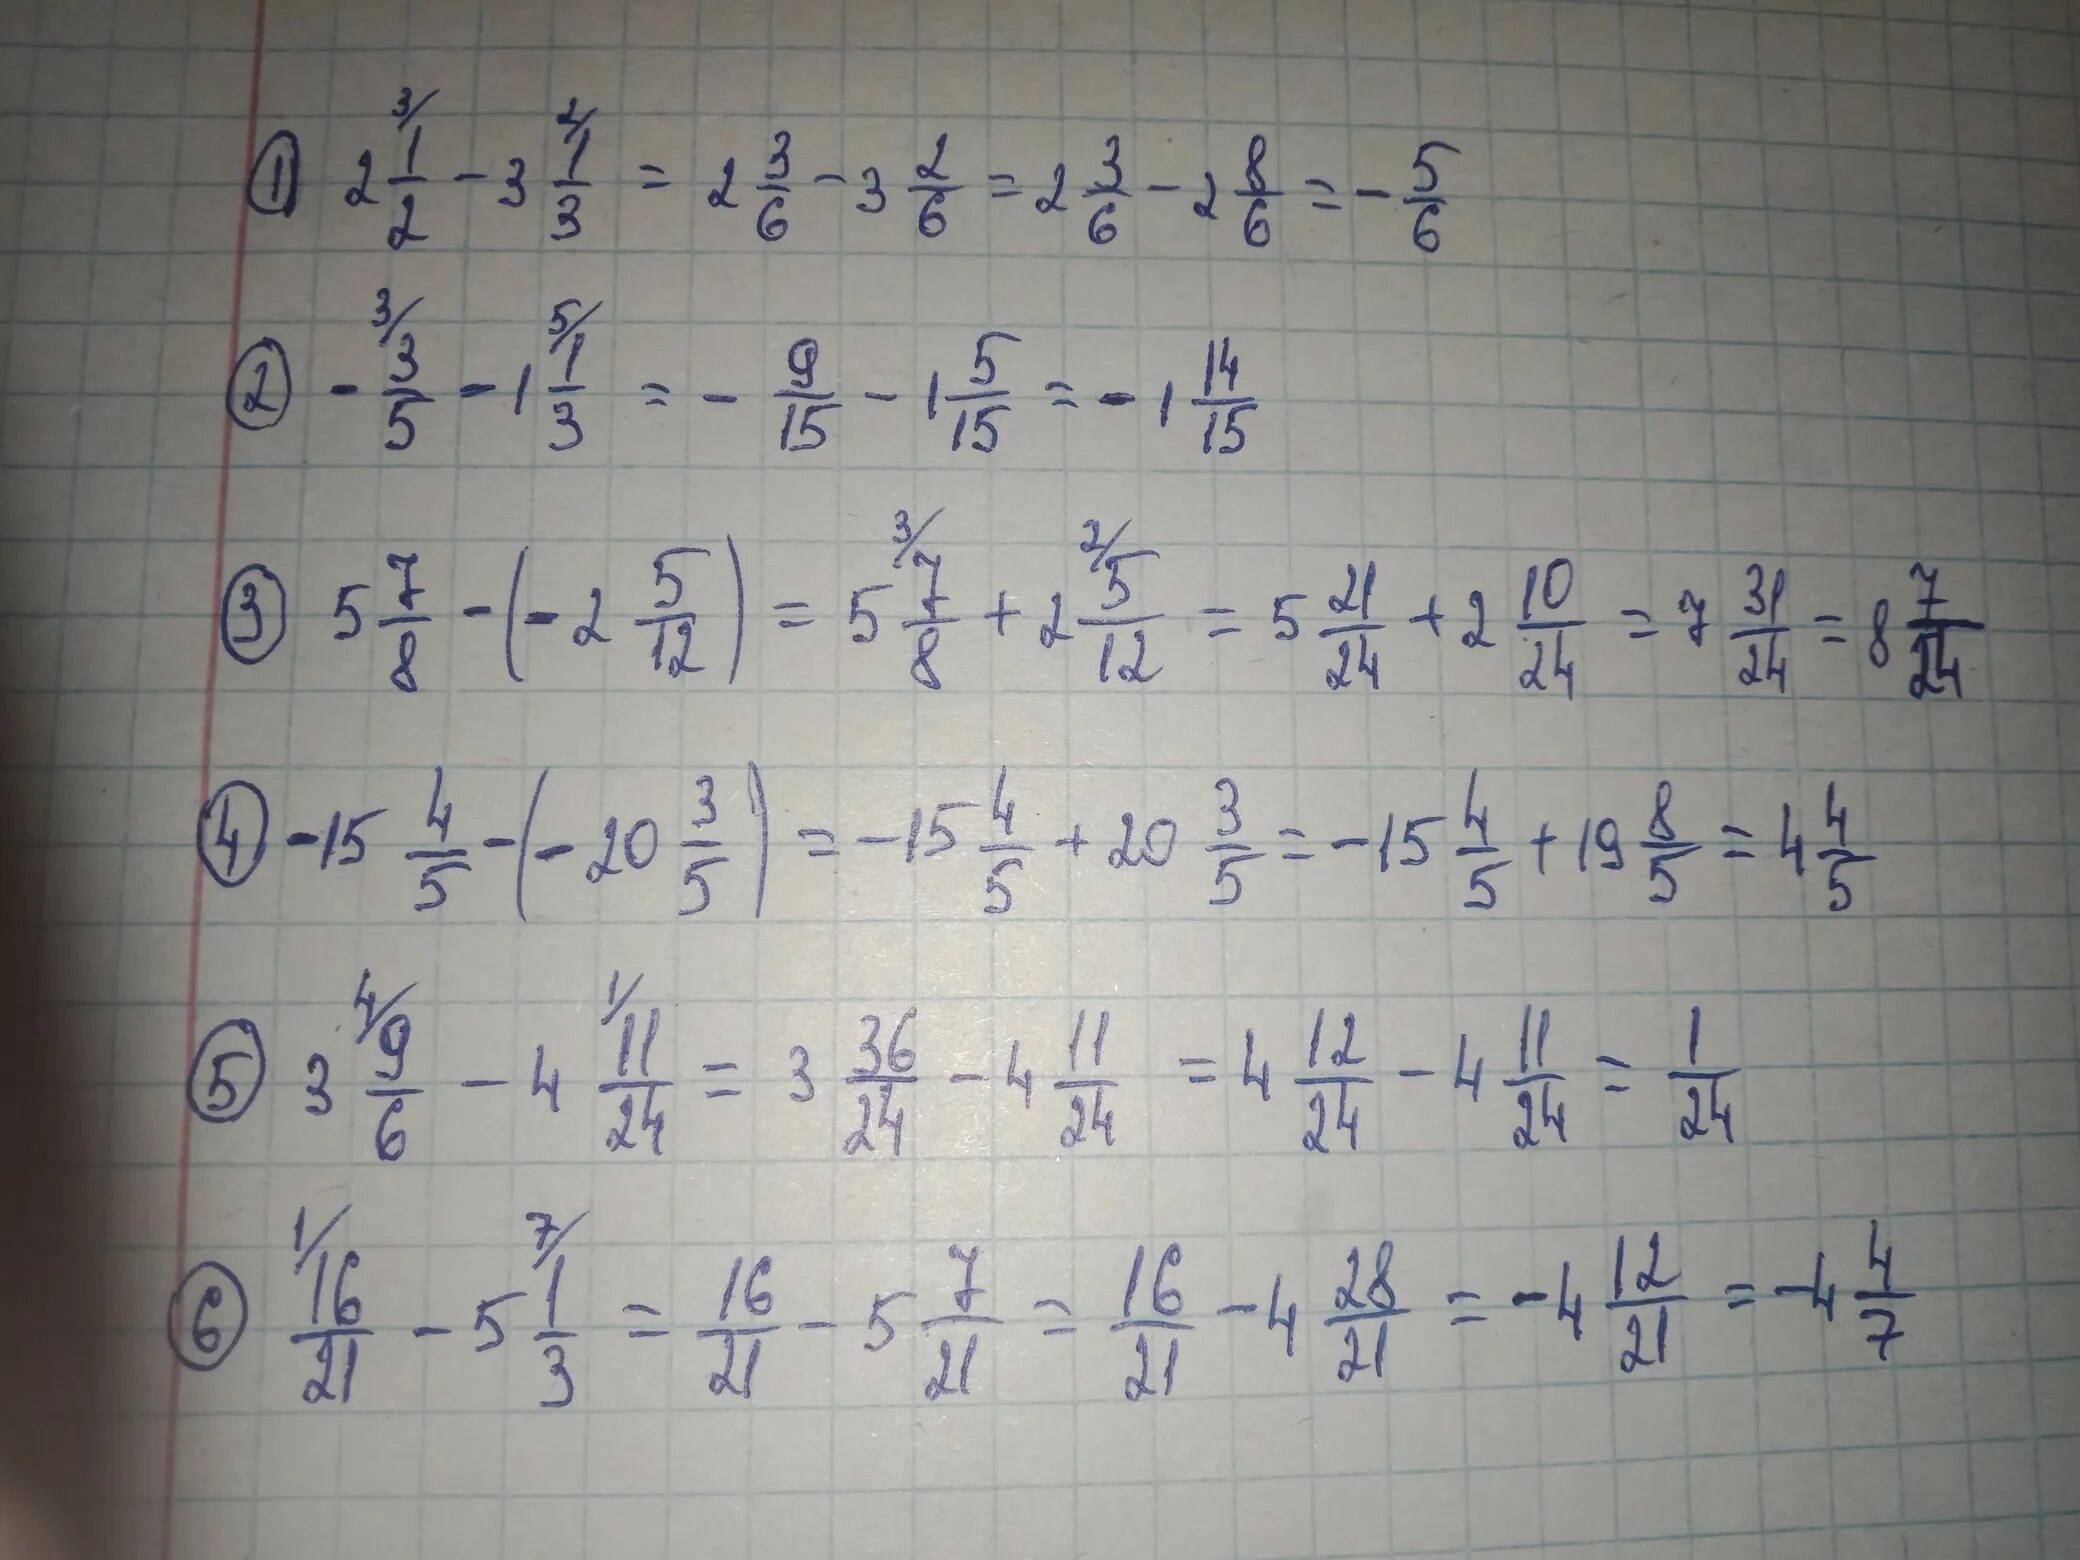 ① 2 3/ 1/2 - 3 2/ 1/3 = 2 3/6 - 3 2/6 = 2 3/6 - 2 8/6 = - 5/6
② - 3/ 3/5 - 1 5/ 1/3 = - 9/15 - 1 5/15 = - 1 14/15
③ 5 7/8 - (- 2 5/12) = 5 3/ 7/8 + 2 2/ 5/12 = 5 21/24 + 2 10/24 = 7 31/24 = 8 7/24
④ - 15 4/5 - (- 20 3/5) = - 15 4/5 + 20 3/5 = - 15 4/5 + 19 8/5 = 4 4/5
⑤ 3 4/ 9/6 - 4 1/ 11/24 = 3 36/24 - 4 11/24 = 4 12/24 - 4 11/24 = 1/24
⑥ 1/ 16/21 - 5 7/ 1/3 = 16/21 - 5 7/21 = 16/21 - 4 28/21 = - 4 12/21 = - 4 4/7